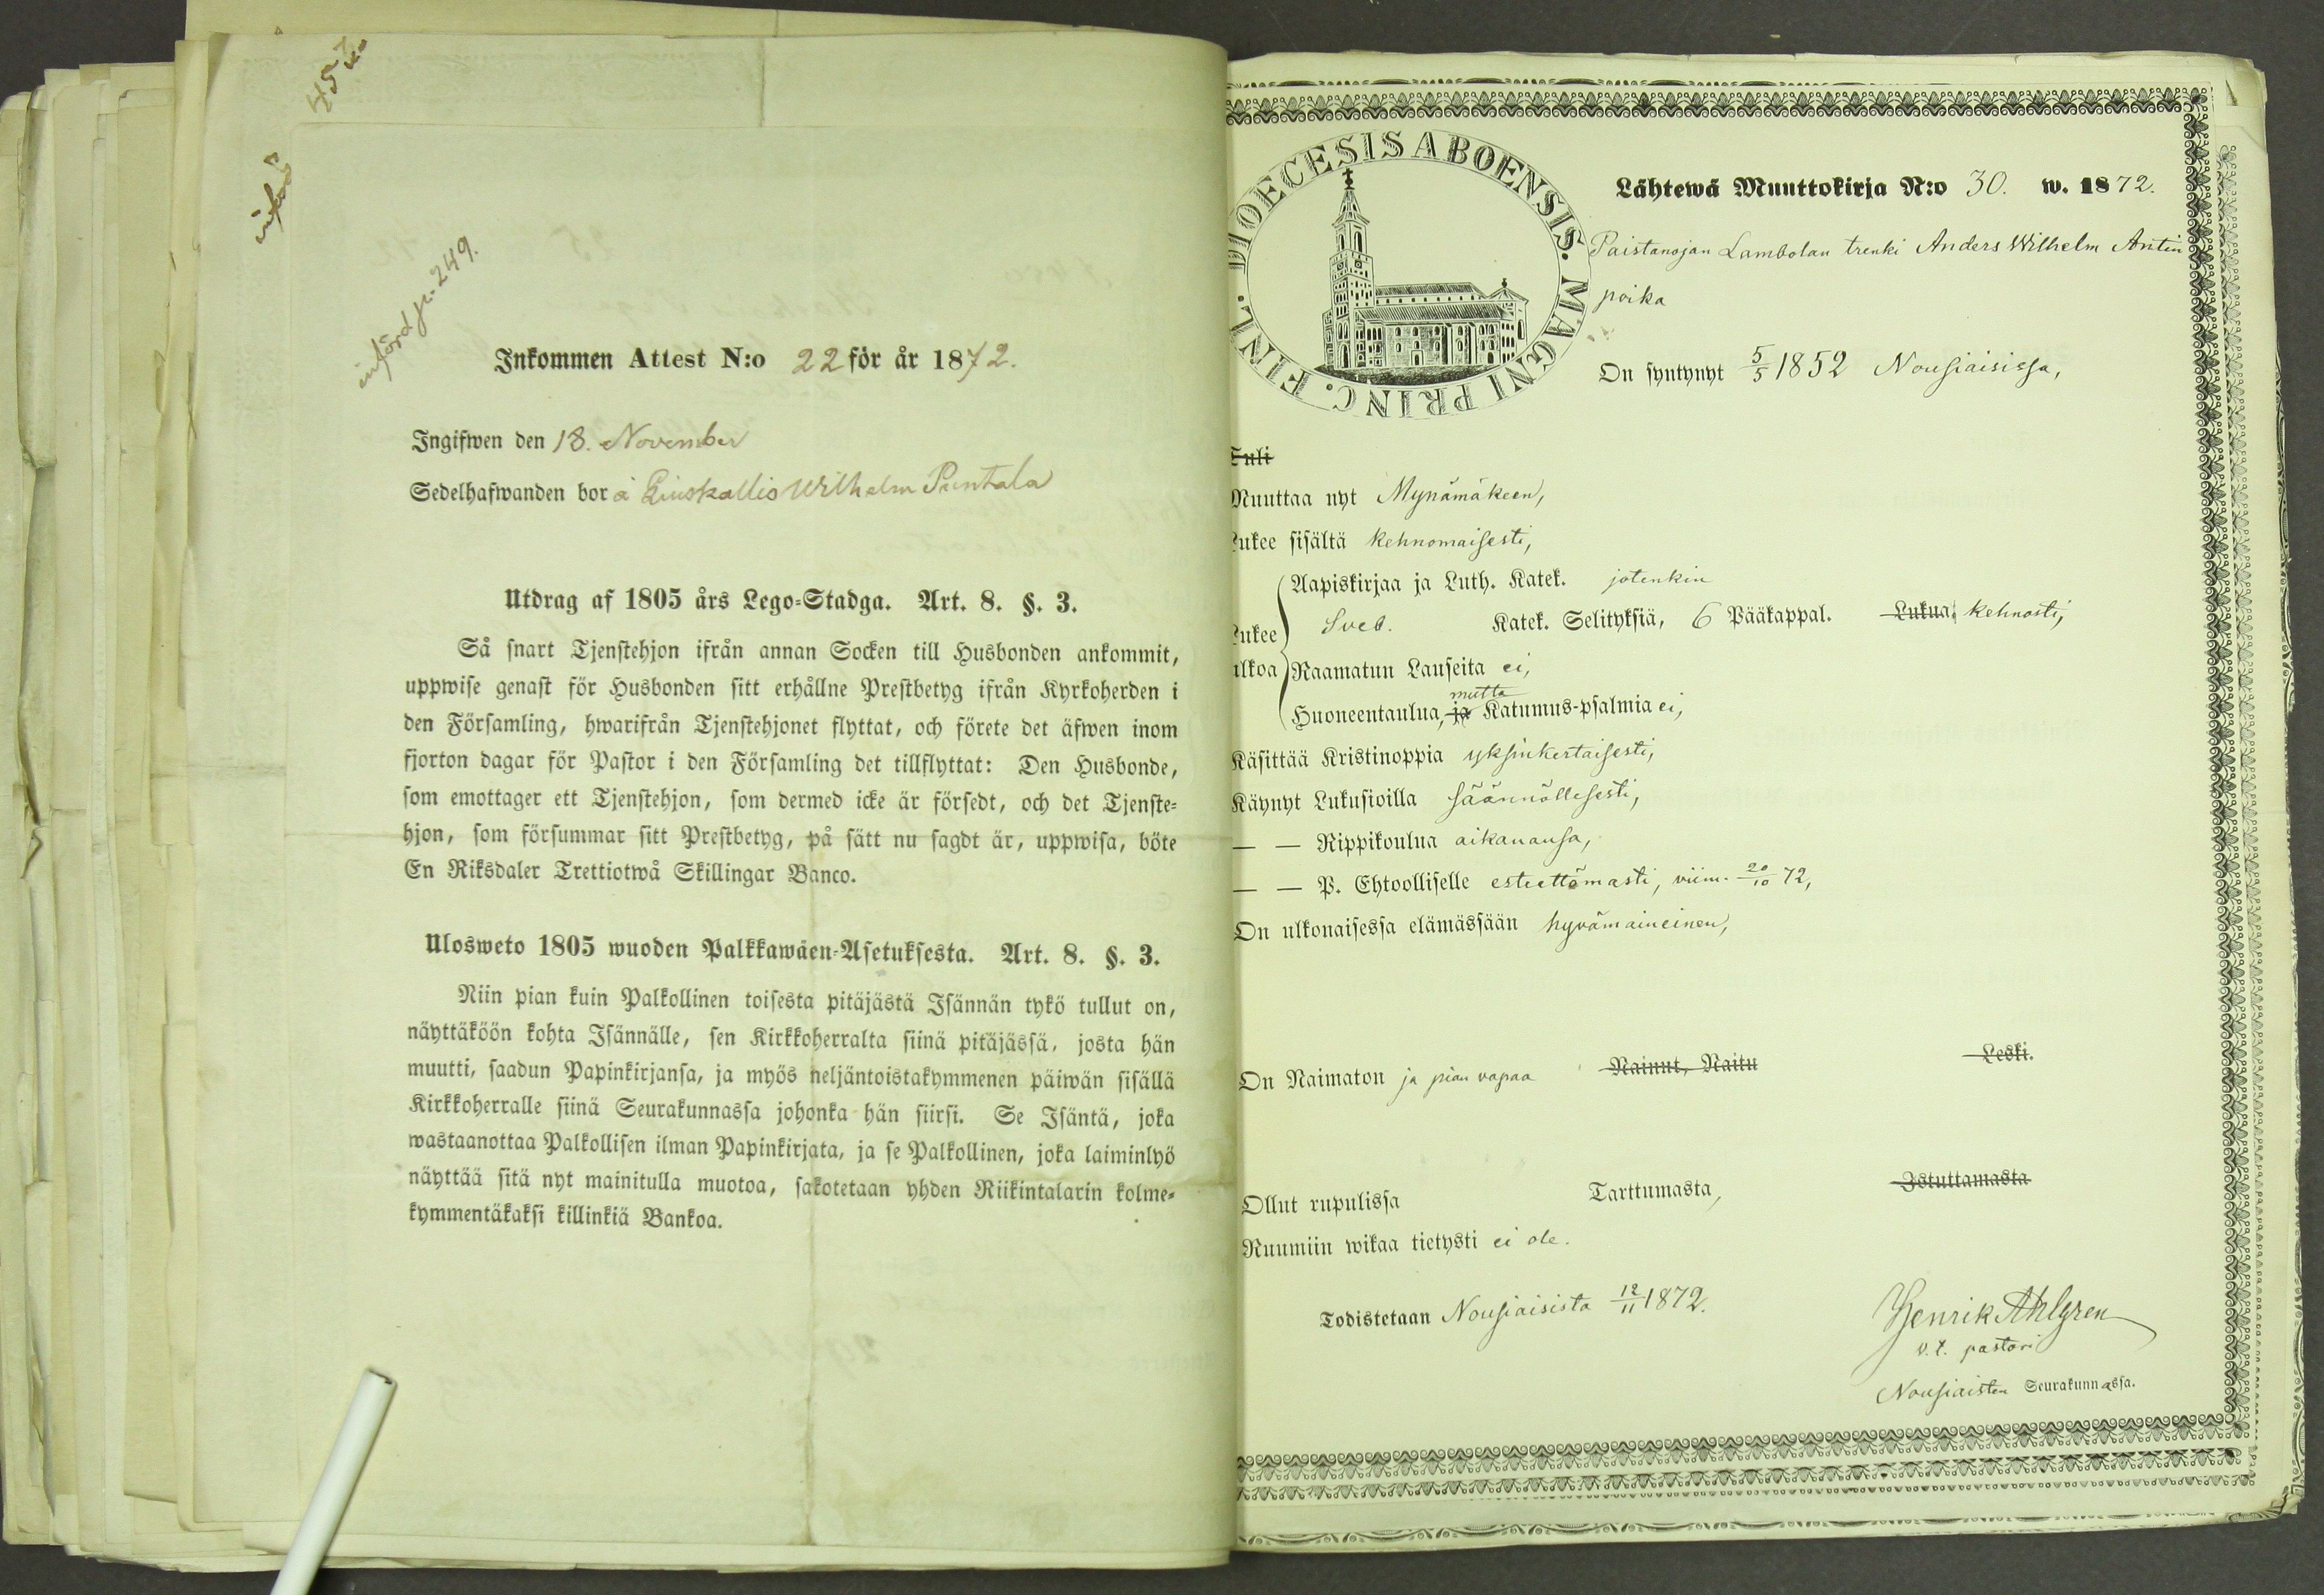 införd p. 249.
Inkommen Attest N:o 22 för år 1872.
Ingifwen den 18. November
Sedelhafwanden bor å Wilhelm Puntala
Utdrag af 1805 års Lego-Stadga. Art. 8. §. 3.
Så snart Tjenstehjon ifrån annan Socken till Husbonden ankommit,
uppwise genast för Husbonden sitt erhållne Prestbetyg ifrån Kyrkoherden i
den Församling, hwarifrån Tjenstehjonet flyttat, och förete det äfwen inom
fjorton dagar för Pastor i den Församling det tillflyttat: Den Husbonde,
som emottager ett Tjenstehjon, som dermed icke är försedt, och det Tjenste-
hjon, som försummar sitt Prestbetyg, på sätt nu sagdt är, uppwisa, böte
En Riksdaler Trettiotwå Skillingar Banco.
Ulosweto 1805 wuoden Palkkawäen-Asetuksesta. Art. 8. §. 3.
Niin pian kuin Palkollinen toisesta pitäjästä Isännän tykö tullut on,
näyttäköön kohta Isännälle, sen Kirkkoherralta siinä pitäjässä, josta hän
muutti, saadun Papinkirjansa, ja myös neljäntoistakymmenen päiwän sisällä
Kirkkoherralle siinä Seurakunnassa johonka hän siirsi. Se Isäntä, joka
wastaanottaa Palkollisen ilman Papinkirjata, ja se Palkollinen, joka laiminlyö
näyttää sitä nyt mainitulla muotoa, sakotetaan yhden Riikintalarin kolme-
kymmentäkaksi killinkiä Bankoa.
FINL. DIOECESIS ABOENSIS. MAGNI PRINC.
Lähtewä Muuttokirja N:o 30. w. 1872.
Paistanojan Lambolan trenki Anders Wilhelm Antin
poika
On syntynyt 5/5 1852 Nousiaisissa,
Tuli
Muuttaa nyt Mynämäkeen,
Lukee sisältä kehnomaisesti,
Aapiskirjaa ja Luth. Katek. jotenkin
Lukee ulkoa Sveb. Katek. Selityksiä, 6 Pääkappal. Lukua, kehnosti,
Raamatun Lauseita ei,
mutta
Huoneentaulua, ja Katumus-psalmia ei,
Käsittää Kristinoppia yksinkertaisesti,
Käynyt Lukusioilla säännöllisesti,
— — Rippikoulua aikanansa,
— — P. Ehtoolliselle esteettömästi, viim. 20/10 72,
On ulkonaisessa elämässään hyvämaineinen,
On Naimaton ja pian vapaa Nainut, Naitu Leski.
Ollut rupulissa Tarttumasta, Istuttamasta
Ruumiin wikaa tietysti ei ole.
Todistetaan Nousiaisista 12/11 1872.
Henrik Ahlgren
v.t. pastori
Nousiaisten Seurakunnassa.